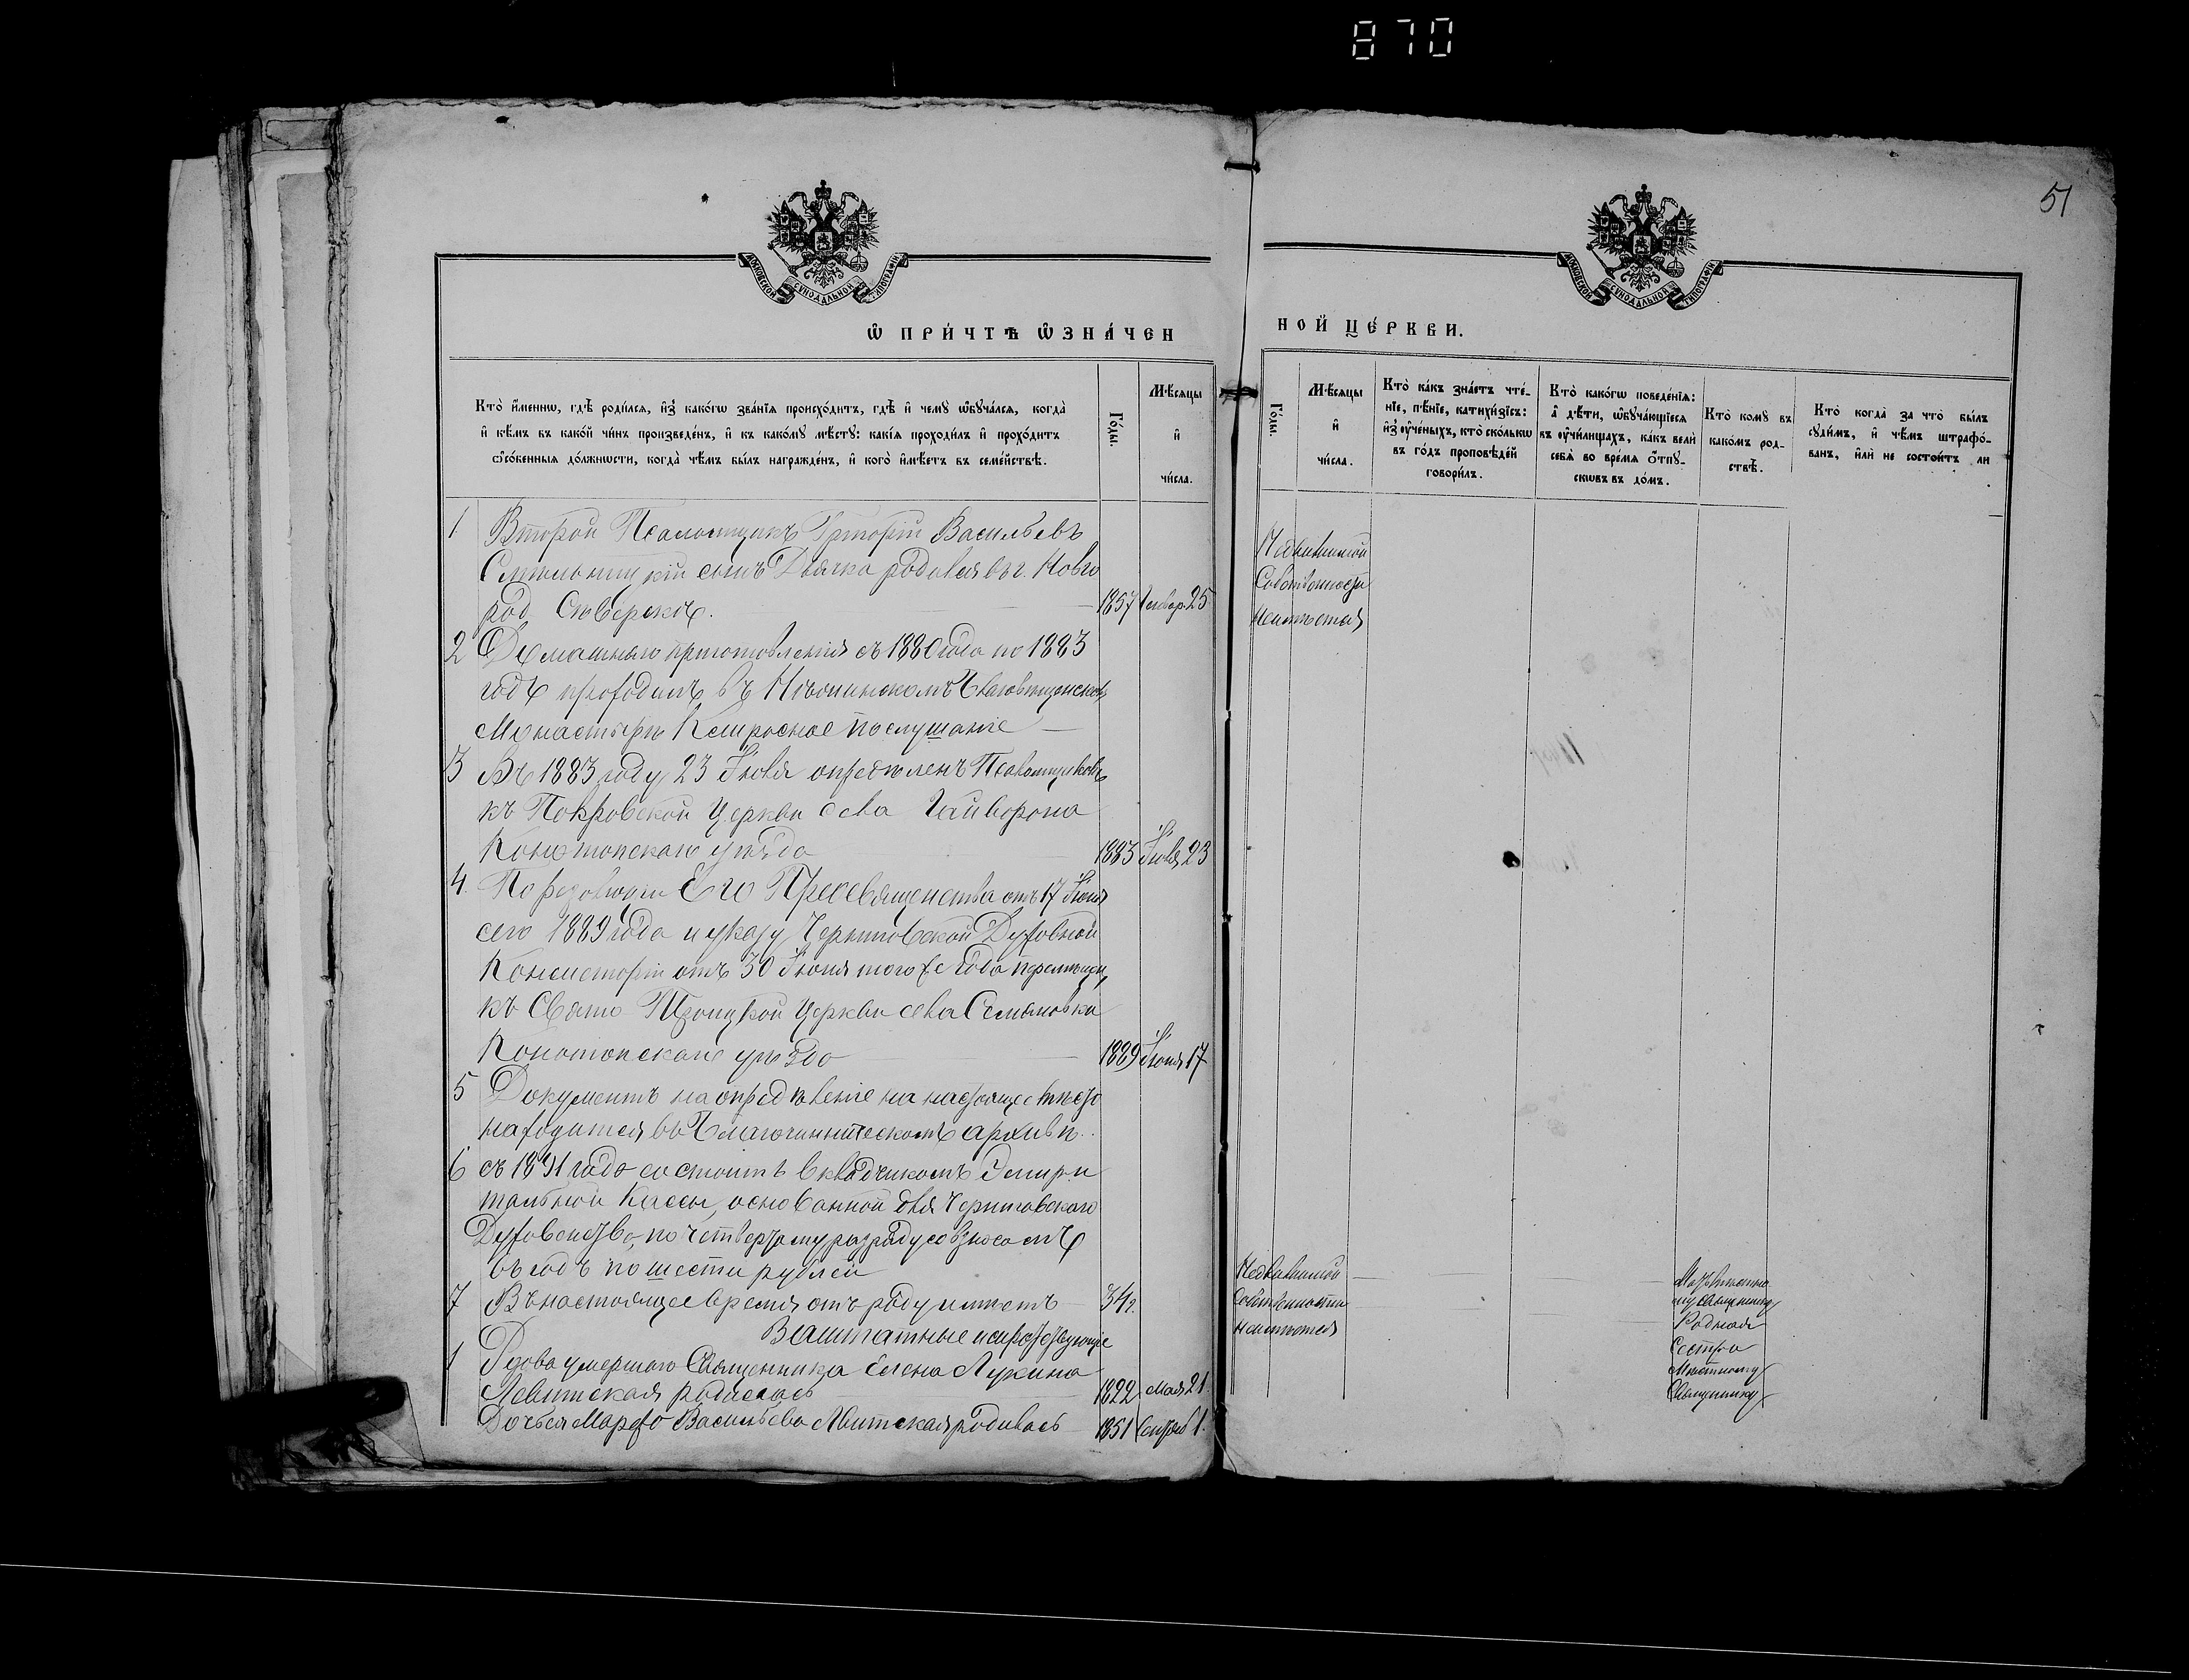 870
51
МОСКОВСКОЙ СѴНОДАЛЬНОЙ ТИПОГРАФІИ
МОСКОВСКОЙ СѴНОДАЛЬНОЙ ТИПОГРАФІИ
Ѽ ПРИ́ЧТѢ Ѽ҆ЗНА́ЧЕН
НОЙ ЦЕ́РКВИ.
Кто̀ и҆́меннѡ, гдѣ̀ роди́лся, и҆з̾ како́гѡ зва́нїѧ происхо́дитъ, гдѣ̀ и҆ чемꙋ̀ ѡ҆бꙋча́лся, когда̀
и҆ кѣ́мъ въ како́й чи́нъ произведе́нъ, и҆ къ како́мꙋ мѣ́стꙋ: какі́ѧ проходи́лъ и҆ прохо́дитъ
ѻ҆со́бенныѧ до́лжнѡсти, когда̀ чѣ́мъ бы́лъ награжде́нъ, и҆ кого̀ и҆мѣ́етъ въ семе́йствѣ.
Го́ды.
Мѣ́сяцы
и҆
чи́сла.
Го́ды.
Мѣ́сяцы
и҆
чи́сла.
Кто̀ ка́къ зна́етъ чте́-
нїе, пѣ́нїе, катихи́зїсъ:
и҆з̾ ᲂу҆че́ныхъ, кто̀ ско́лькѡ
въ го́дъ проповѣ́дей
говори́лъ.
Кто̀ како́гѡ поведе́нїѧ:
а҆ дѣ́ти, ѡ҆бꙋча́ющїесѧ
въ ᲂу҆чи́лищахъ, ка́къ велѝ
себѧ̀ во вре́мѧ ѿпꙋ-
скѡвъ въ до́мъ.
Кто̀ комꙋ̀ въ
како́мъ род-
ствѣ̀.
Кто̀ когда̀ за что̀ бы́лъ
сꙋди́мъ, и҆ чѣ́мъ штрафо́-
ванъ, и҆лѝ не состои́тъ ли
1 Второй Псаломщикъ Григорій Васильевъ
сынъ Дьячка родился въ г. Новго
род Сѣверскѣ. 1857 Январ. 25
Недвижимой
Собственности
Неимѣется
2 Домашняго приготовленія съ 1880 года по 1883
годъ проходилъ въ Нѣжинскомъ Благовѣщенском
Монастырѣ Клиросное послушаніе
3 Въ 1883 году 23 Іюля опредѣленъ Псаломщиком
къ Покровской Церкви села Гайворона
Конотопскаго уѣзда 1883 Іюля 23
4. По резолюціи Его Преосвященства отъ 17 Іюня
сего 1889 года и указу Черниговской Духовной
Консисторіи отъ 30 Іюня того же года перемѣщен
къ Свято Троицкой Церкви села Семяновки
Конотопскаго уѣзда 1889 Іюня 17
5 Документъ на опредѣленіе на настоящее мѣсто
находится въ Благочинническомъ архивѣ.
6 съ 1891 года состоитъ вкладчикомъ Эмири
тальной Кассы, основанной для Черниговскаго
Духовенства, по четвертому разряду со взносомъ
въ годъ по шести рублей
7 Въ настоящее время отъ роду имѣетъ 34 г.
Заштатные и сиротствующіе
1 Вдова умершаго Священника Елена Лукина
Левитская родилась 1822 мая 21.
Дочь ея Марфа Васильева Левитская родилась 1851 Сентяб 1.
Недвижимой
Собственности
неимѣется
му священнику
Родная
Сестра
Мѣстному
Священнику